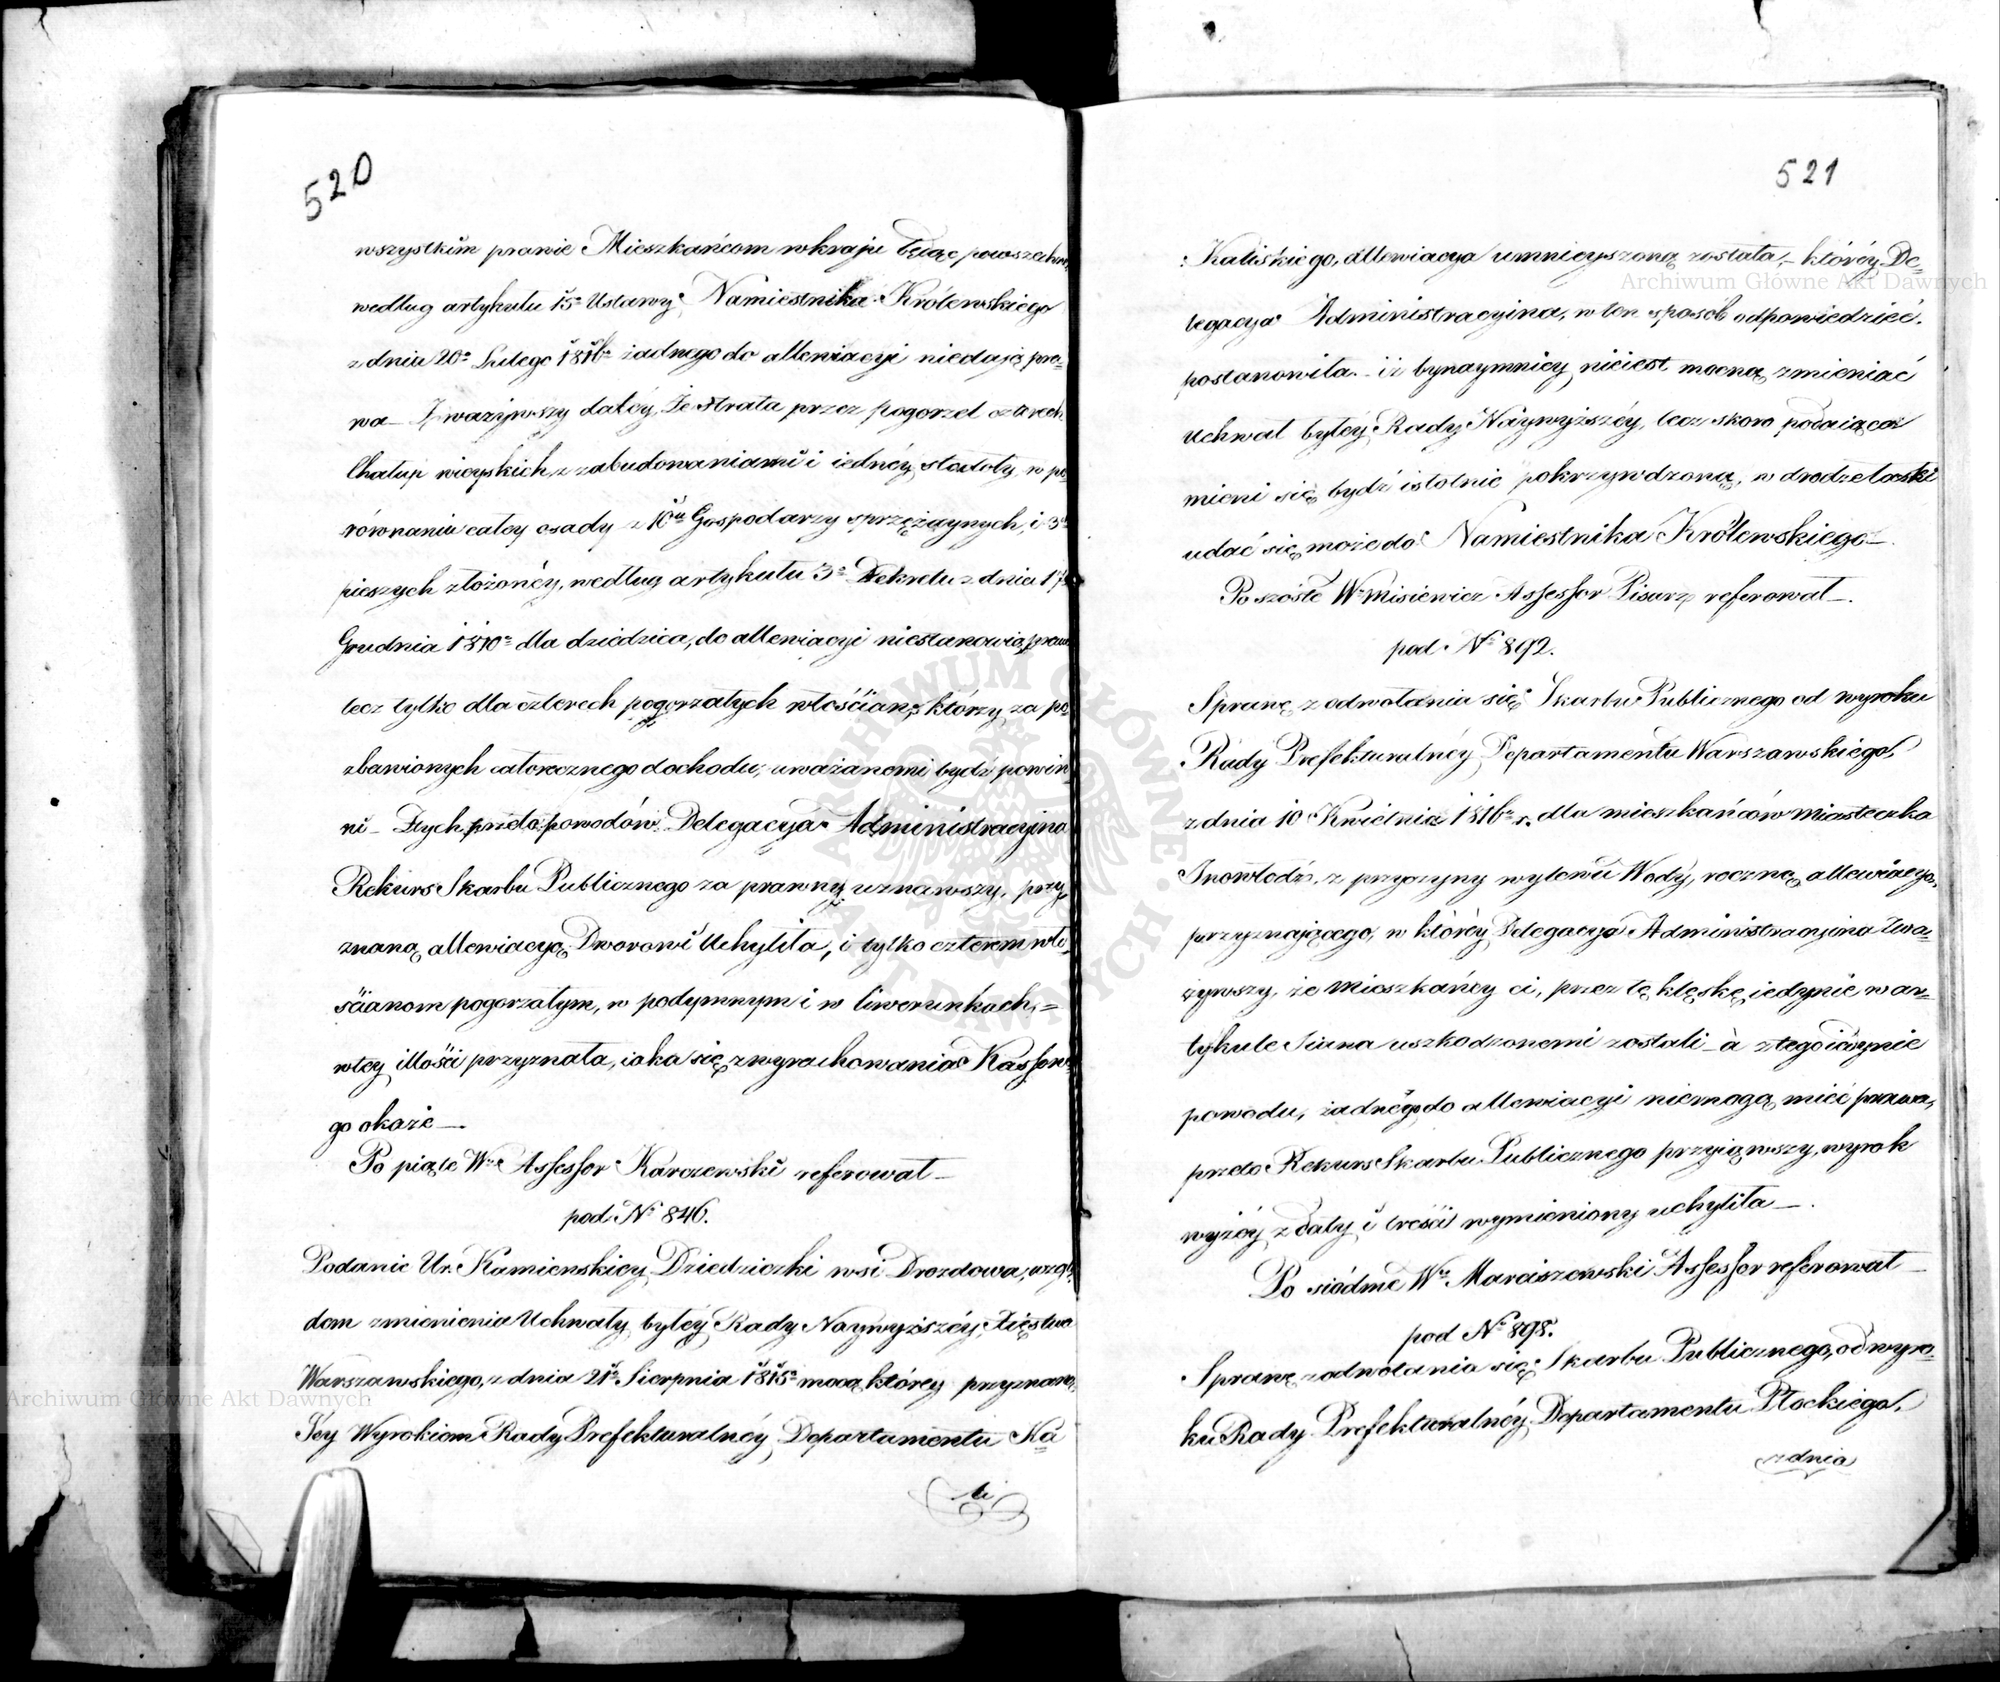 520
wszystkim prawie Mieszkańcom w kraju będąc powszechne,
według artykułu 15º Ustawy Namiestnika Królewskiego
z dnia 20º Lutego 1816º żadnego do allewiacyi niedają pra=
wa – Zważywszy daley, że strata przez pogorzel czterech
Chałup wieyskich z zabudowaniami i iednéy stodoły, w po=
równaniu całey osady z 10iu Gospodarzy sprzężaynych, i 3ch
pieszych złożonéy, według artykułu 3º Dekretu z dnia 17º
Grudnia 1810º dla dziedzica, do allewiacyi niestanowią prawa
lecz tylko dla czterech pogorzałych włościan, którzy za po=
zbawionych całorocznego dochodu, uważanemi bydź powin=
ni – Z tych przeto powodów Delegacya Administracyina
Rekurs Skarbu Publicznego za prawny uznawszy, przy=
znaną allewiacyą Dworowi Uchyliła, i tylko czterem wło=
ścianom pogorzałym, w podymnym i w liwerunkach, =
w tey illości przyznała, iaka się z wyrachowania Kassowe=
go okaże –
Po piąte Wny Assessor Karczewski referował –
pod Nº 846.
Podanie Ur. Kamienskiey Dziedziczki wsi Drozdowa, wzglę=
dem zmienienia Uchwały byłéy Rady Naywyższéy Xięstwa
Warszawskiego, z dnia 21º Sierpnia 1815º mocą którey przyznana
Jéy Wyrokiem Rady Prefekturalnéy Departamentu Ka=
li
521
Kaliskiego, allewiacya umnieyszoną została, – któréy De=
legacya Administracyina, w ten sposób odpowiedzieć
postanowiła – iż bynaymniey nieiest mocną zmieniać
Uchwał byłéy Rady Naywyższéy, lecz skoro podaiąca
mieni się bydź istotnie pokrzywdzoną, w drodze łaski
udać się może do Namiestnika Królewskiego –
Po szóste Wny Misiewicz Assessor Pisarz referował –
pod Nº 892.
Sprawę z odwołania się Skarbu Publicznego od wyroku
Rady Prefekturalnéy Departamentu Warszawskiego,
z dnia 10 Kwietnia 1816º r. dla mieszkańców miasteczka
Inowłodz, z przyczyny wylewu Wody, roczną allewiacyą
przyznającego, w któréy Delegacya Administracyina zwa=
żywszy, że mieszkańcy ci, przez tę klęskę iedynie w ar=
tykule Siana uszkodzonemi zostali – a z tego iedynie
powodu, żadnégo do allewiacyi niemogą mieć prawa,
przeto Rekurs Skarbu Publicznego przyiąwszy, wyrok
wyżéy z daty i treści wymieniony uchyliła –
Po siódme Wny Marciszewski Assessor referował –
pod Nº 898.
Sprawę z odwołania się Skarbu Publicznego, od wyro=
ku Rady Prefekturalnéy Departamentu Płockiego,
z dnia
Archiwum Główne Akt Dawnych
Archiwum Główne Akt Dawnych
ARCHIWUM GŁÓWNE AKT DAWNYCH